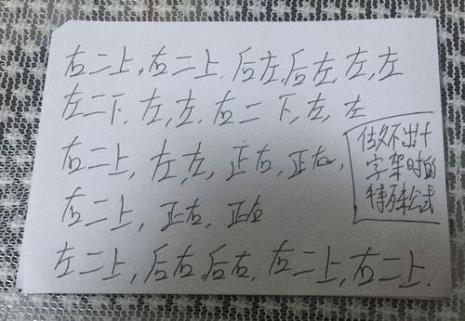 右二上,右二上.后左,后左,左,左
左二下.左,左.右二下,左,左
右二上,左,左,正右,正右,
右二上,正右,正右
左二上,后右,后右,右二上,右二上.
做不出十
字架时的
特殊公式